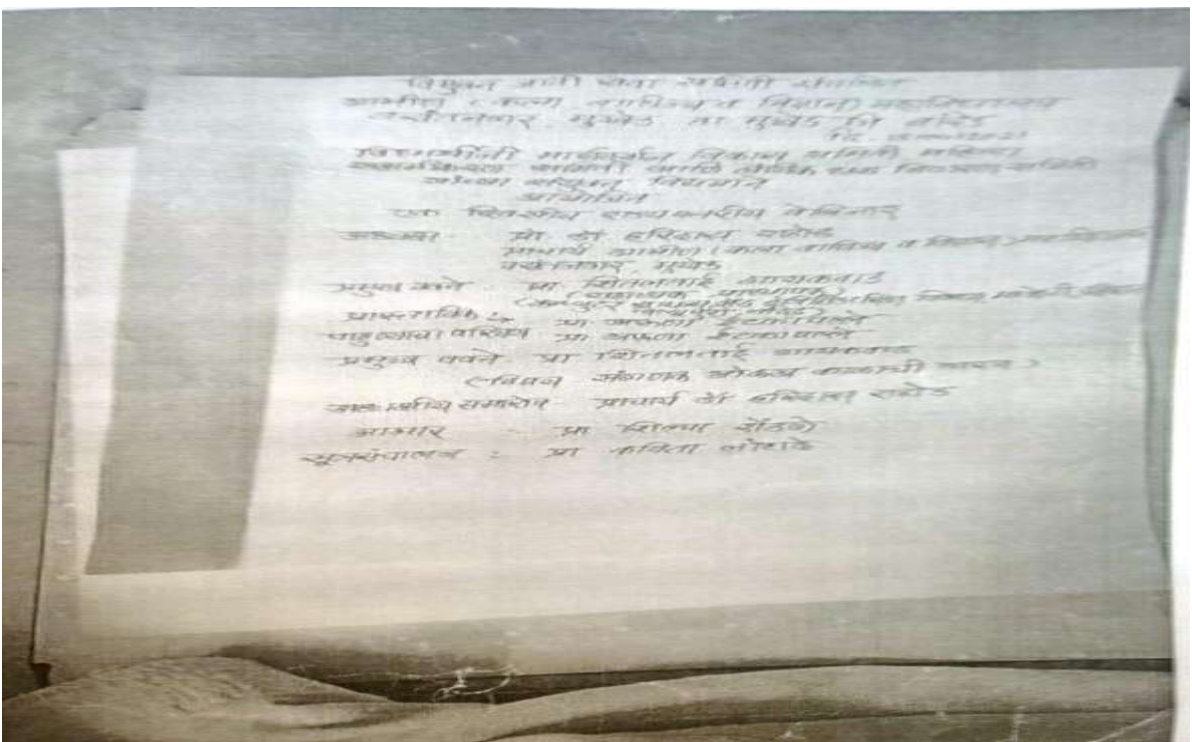 विमुक्त जाती सेवा समिती संचलित
ग्रामीण (कला वाणिज्य व विज्ञान) महाविद्यालय
वसंतनगर, मुखेड ता मुखेड जि नांदेड
दि.
विद्यार्थीनी मार्गदर्शन विकास समिती महिला
समिती आणि लैंगिक छळ निवारण समिती
यांच्या संयुक्त विद्यमाने
आयोजित
एक दिवसीय राज्यस्तरीय वेबिनार
अध्यक्ष प्रा. डॉ हरिदास राठोड
प्राचार्य ग्रामीण (कला वाणिज्य व विज्ञान) महाविद्यालय
वसंतनगर, मुखेड
प्रमुख वक्ते प्रा. शितलताई गायकवाड
(सहाय्यक प्राध्यापक)
प्रास्ताविक : प्रा अरुणा
पाहुण्यांचा परिचय प्रा अरुणा
प्रमुख वक्ते प्रा शितलताई गायकवाड
संगणक ओळख काळाची गरज)
अध्यक्षीय समारोप प्राचार्य डॉ हरिदास राठोड
आभार - प्रा शिल्पा शेंडगे
सूत्रसंचालन : प्रा कविता लोहाळे